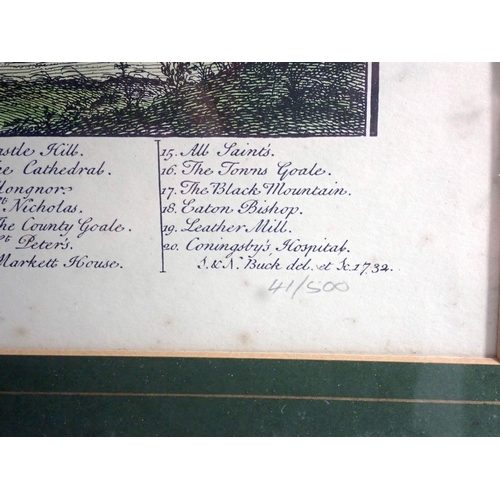 astle Hill.
e Cathedral.
longnor.
t Nicholas.
he County Goale.
t Peter's.
Markett House.
15. All Saints.
16. The Towns Goale.
17. The Black Mountain.
18. Eaton Bishop.
19. Leather Mill.
20. Coningsby's Hospital.
S. & N. Buck del. et Sc. 1732.
41/500